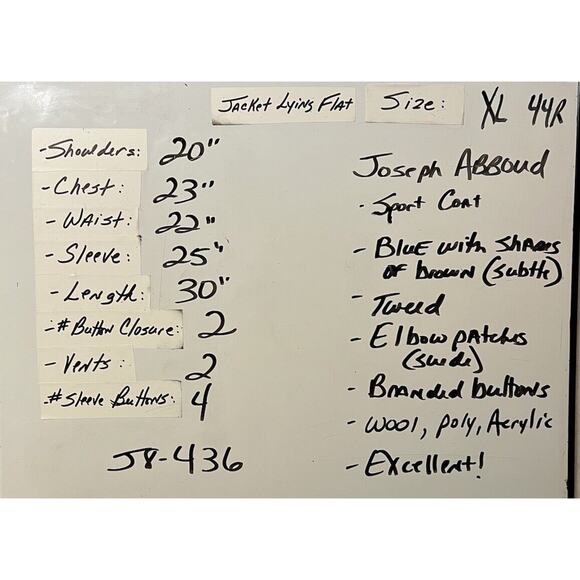 Jacket Lying Flat
Size: XL 44R
- Shoulders: 20"
- Chest: 23"
- Waist: 22"
- Sleeve: 25"
- Length: 30"
- # Button Closure: 2
- Vents: 2
# Sleeve Buttons: 4
J8-436
Joseph ABBOUD
- Sport Coat
- Blue with shades
of brown (subtle)
- Tweed
- Elbow patches
(suede)
- Branded buttons
- Wool, poly, Acrylic
- Excellent!